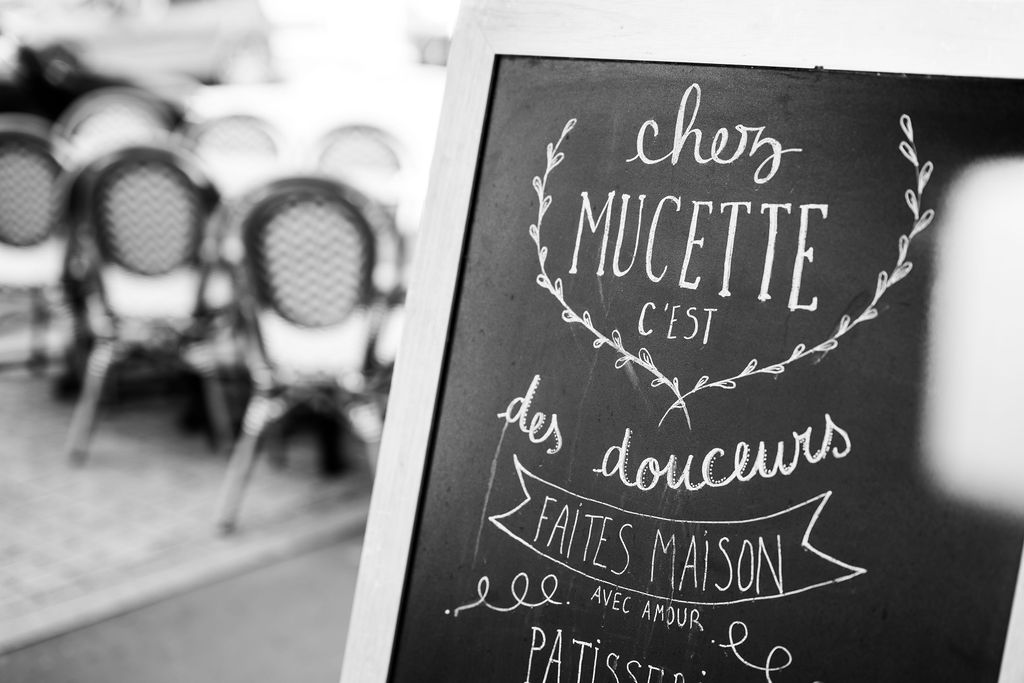 chez
MUCETTE
C'EST
des douceurs
FAITES MAISON
AVEC AMOUR